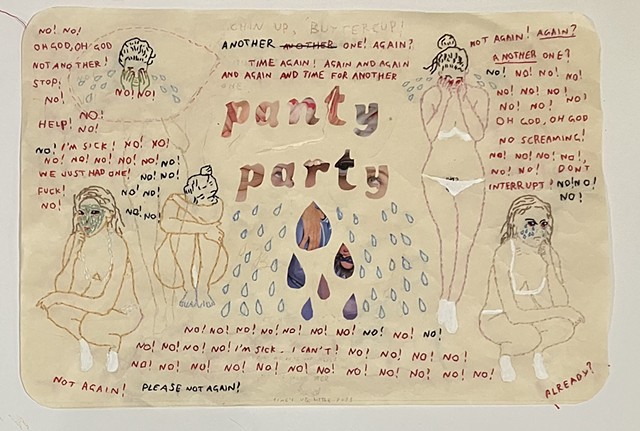 CHIN UP, BUTTERCUP!
NO! NO!
OH GOD, OH GOD
NOT ANOTHER!
STOP!
NO!
NO! NO!
HELP! NO!
NO!
NO! I'M SICK! NO! NO!
NO! NO! NO! NO! NO! NO! NO!
WE JUST HAD ONE! NO! NO!
FUCK! NO! NO!
NO!
NO! NO!
ANOTHER ANOTHER ONE! AGAIN?
TIME AGAIN! AGAIN AND AGAIN
AND AGAIN AND TIME FOR ANOTHER
ONE
panty
party
NOT AGAIN! AGAIN?
ANOTHER ONE?
NO! NO! NO! NO!
NO! NO! NO!
NO! NO! NO!
OH GOD, OH GOD
NO SCREAMING!
NO! NO! NO! NO!
NO! NO! DON'T
INTERRUPT! NO! NO!
NO!
NO! NO! NO! NO! NO! NO! NO! NO! NO! NO!
NO! NO! NO! NO! I'M SICK. I CAN'T! NO! NO! NO! NO!
NO! NO! NO! NO! NO! NO! NO! NO! NO! NO! NO!
NOT AGAIN! PLEASE NOT AGAIN!
ALREADY?